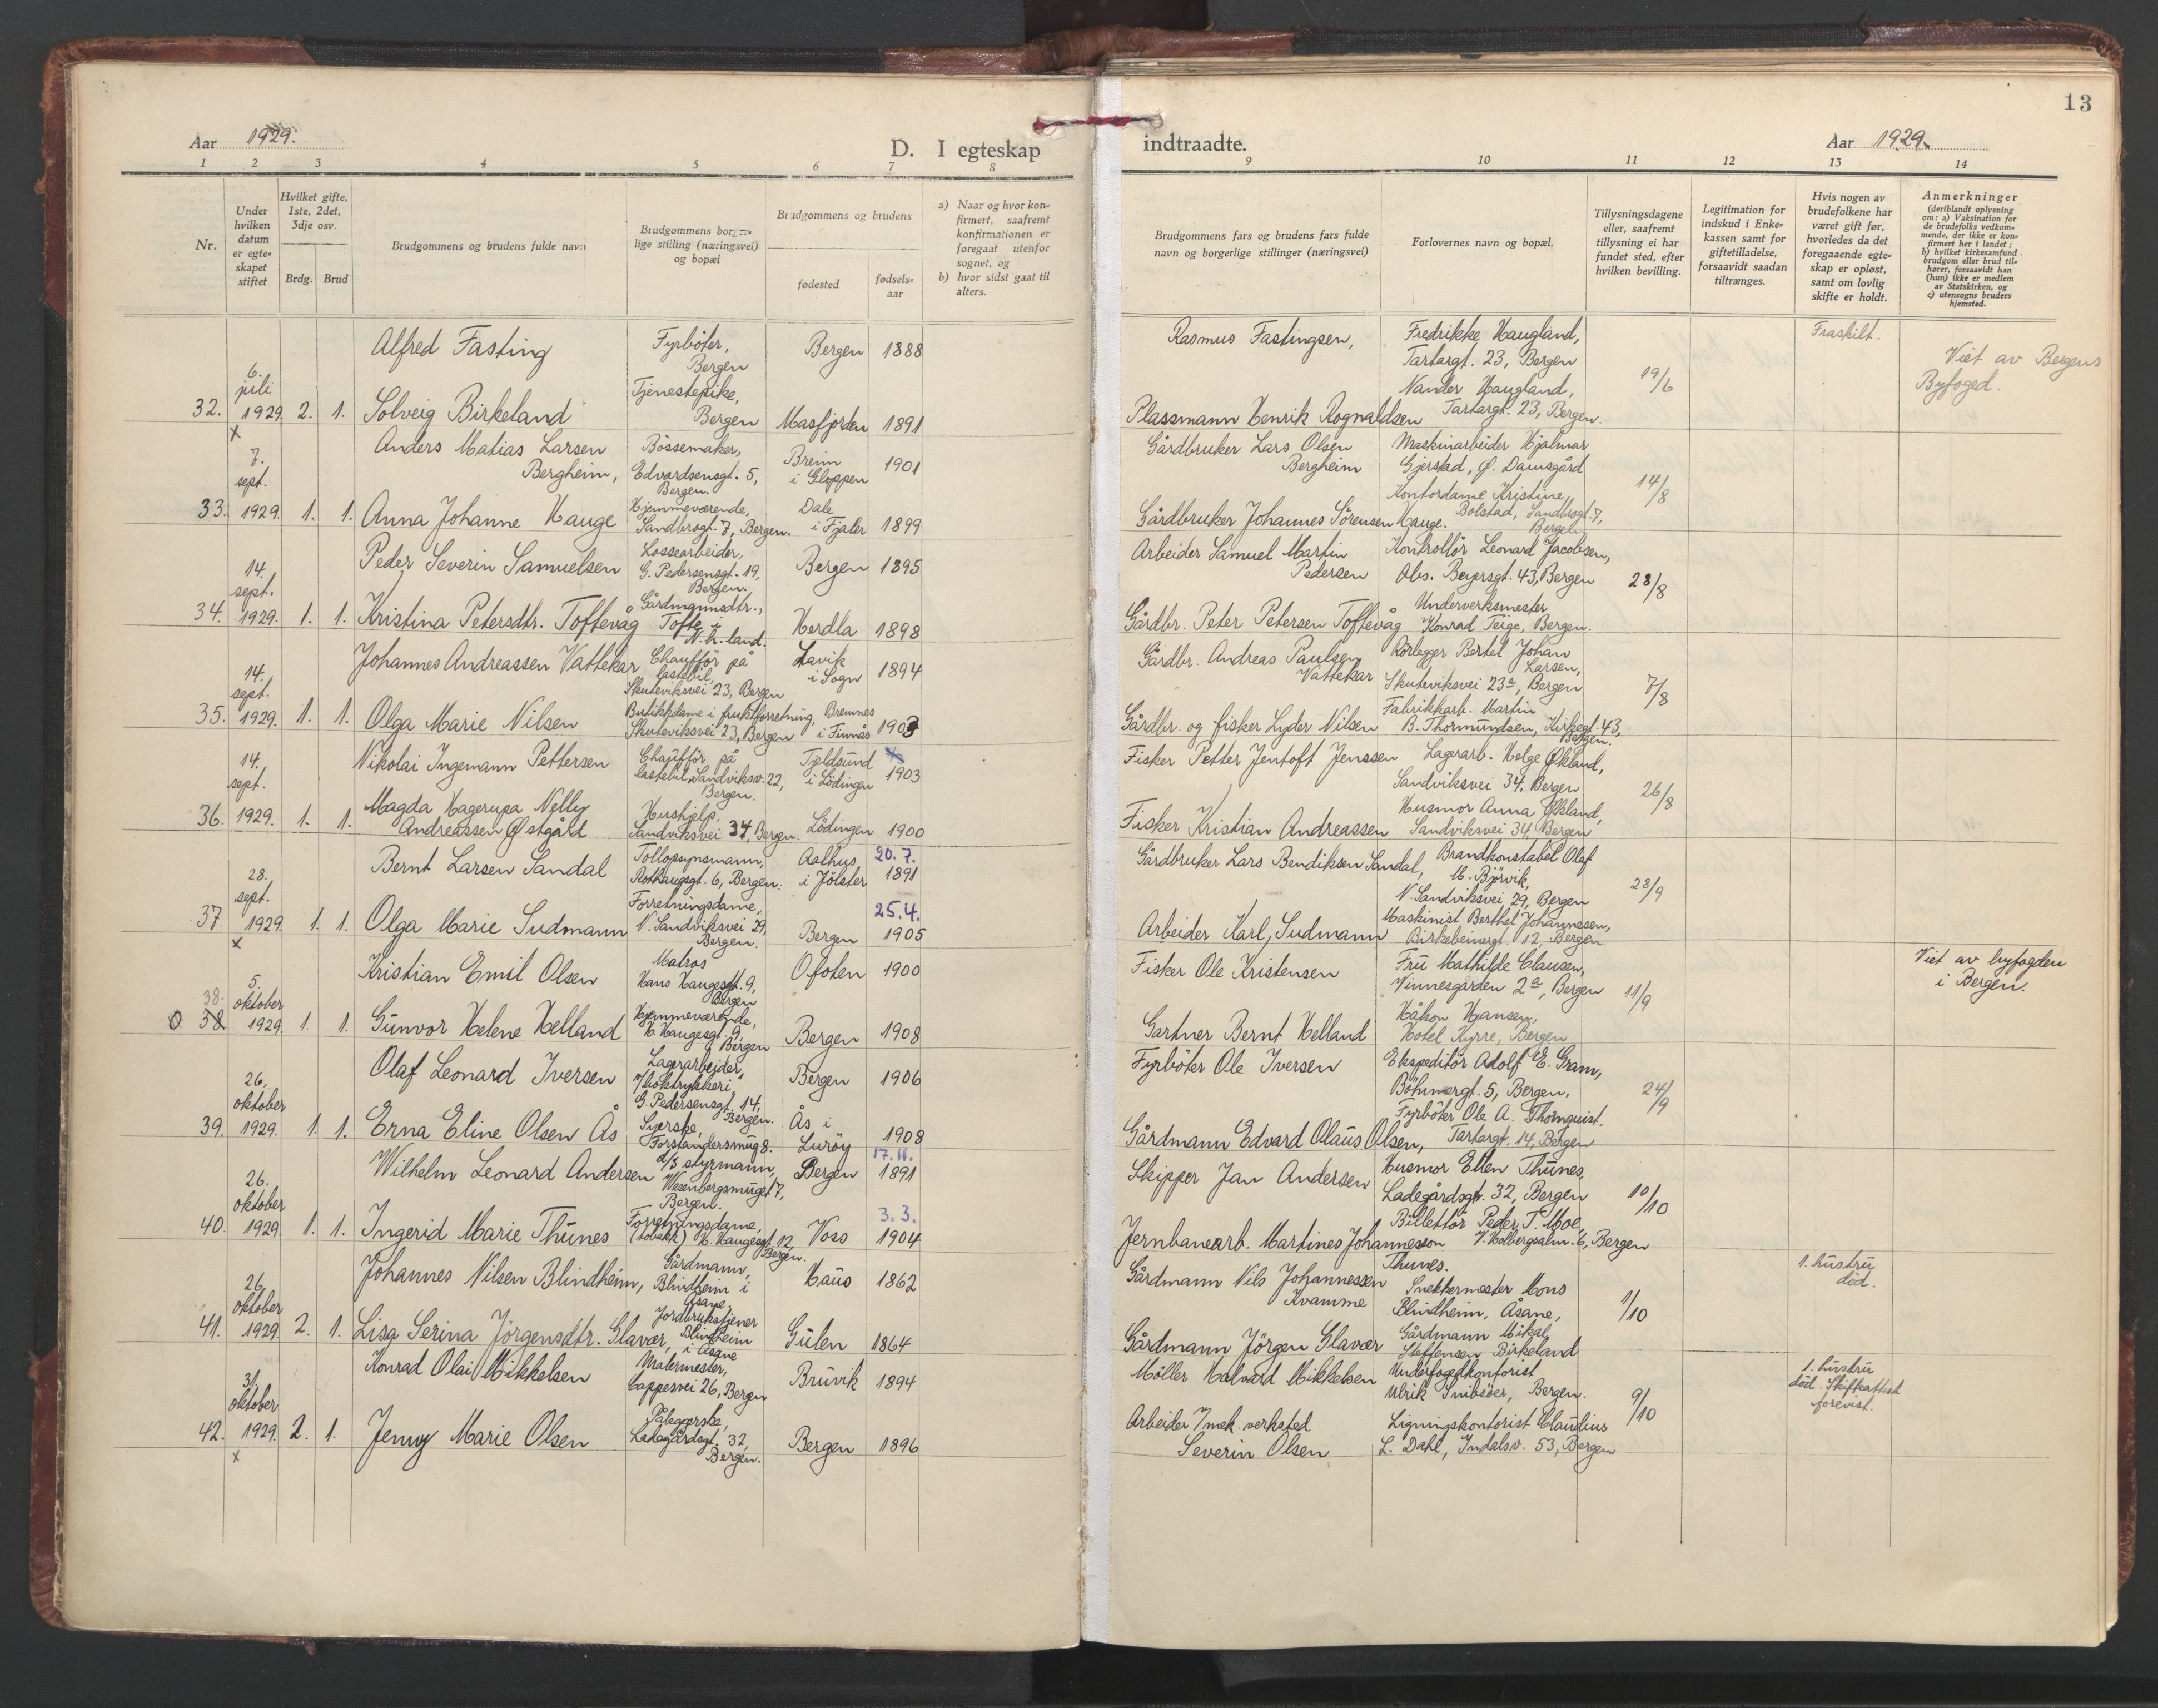 13
Aar 1929.
D. I egteskap indtraadte.
Aar 1929.
1 2 3 4 5 6 7 8 9 10 11 12 13 14
Nr.
Under hvilken datum er egteskapet stiftet
Hvilket gifte, 1ste, 2det, 3dje osv.
Brdg. Brud
Brudgommens og brudens fulde navn
Brudgommens borgerlige stilling (næringsvei) og bopæl
Brudgommens og brudens
fødested
fødselsaar
a) Naar og hvor konfirmert, saafremt konfirmationen er foregaat utenfor sognet, og
b) hvor sidst gaat til alters.
Brudgommens fars og brudens fars fulde navn og borgerlige stillinger (næringsvei)
Forlovernes navn og bopæl.
Tillysningsdagene eller, saafremt tillysning ei har fundet sted, efter hvilken bevilling.
Legitimation for indskud i Enkekassen samt for giftetilladelse, forsaavidt saadan tiltrænges.
Hvis nogen av brudefolkene har været gift før, hvorledes da det foregaaende egteskap er opløst, samt om lovlig skifte er holdt.
Anmerkninger
(deriblandt oplysning om: a) Vaksination for de brudefolks vedkommende, der ikke er konfirmert her i landet; b) hvilket kirkesamfund brudgom eller brud tilhører, forsaavidt han (hun) ikke er medlem av Statskirken, og c) utensogns bruders hjemsted.
32. 6. juli 1929. 2. 1.
x
Alfred Fasting
Fyrböter, Bergen
Bergen 1888
Rasmus Fastingsen,
Fredrikke Haugland, Tartargt. 23, Bergen
19/6
Fraskilt.
Viet av Bergens Byfoged.
Solveig Birkeland
Tjenestepike, Bergen
Masfjorden 1891
Plassmann Henrik Rognaldsen
Nander Haugland, Tartargt. 23, Bergen.
33. 7. sept. 1929. 1. 1.
Anders Matias Larsen Bergheim,
Bössemaker, Edvardsensgt. 5, Bergen.
Breim i Gloppen 1901
Gårdbruker Lars Olsen Bergheim
Maskinarbeider Hjalmar Gjerstad, Ø. Damsgård
14/8
Anna Johanne Hauge
Hjemmeværende, Sandbrogt. 7, Bergen.
Dale i Fjaler 1899
Gårdbruker Johannes Sörensen Hauge.
Kontordame Kristine Bolstad, Sandbrogt. 7, Bergen
34. 14. sept. 1929. 1. 1.
Peder Severin Samuelsen
Lossearbeider, G. Pedersensgt. 19, Bergen.
Bergen 1895
Arbeider Samuel Martin Pedersen
Kontrollör Leonard Jacobsen, Abs. Beyersgt. 43, Bergen
28/8
Kristina Petersdtr. Toftevåg
Gårdmannsdtr., Tofte i N.h.land.
Herdla 1898
Gårdbr. Peter Petersen Toftevåg
Underverksmester Konrad Teige, Bergen.
35. 14. sept. 1929. 1. 1.
Johannes Andreassen Vattekar
Chaufför på lastebil, Skuteviksvei 23, Bergen
Lavik i Sogn 1894
Gårdbr. Andreas Paulsen Vattekar
Rörlegger Bertel Johan Larsen, Skuteviksvei 23a, Bergen
7/8
Olga Marie Nilsen
Butikkdame i fruktforretning, Skuteviksvei 23, Bergen
Bremnes i Finnås 1903
Gårdbr. og fisker Lyder Nilsen
Fabrikkarb. Martin B. Thormundsen, Kirkegt. 43, Bergen.
36. 14. sept. 1929. 1. 1.
Nikolai Ingemann Pettersen
Chaufför på lastebil, Sandviksv. 22, Bergen.
Tjeldsund i Lödingen 1903
Fisker Petter Jentoft Jenssen
Lagerarb. Helge Økland, Sandviksvei 34, Bergen
26/8
Magda Hagerupa Nelly Andreassen Østgåld
Hushjelp. Sandviksvei 34, Bergen
Lödingen 1900
Fisker Kristian Andreassen
Husmor Anna Økland, Sandviksvei 34, Bergen
37. 28. sept. 1929. 1. 1.
x
Bernt Larsen Sandal
Tollopsynsmann, Rothaugsgt. 6, Bergen.
Aalhus, i Jölster 20.7. 1891
Gårdbruker Lars Bendiksen Sandal,
Brandkonstabel Olaf M. Björvik, N. Sandviksvei 29, Bergen
28/9
Olga Marie Sudmann
Forretningsdame, N. Sandviksvei 29, Bergen.
Bergen 25.4. 1905
Arbeider Karl Sudmann
Maskinist Berthel Johannesen, Birkebeinergt. 12, Bergen.
38. 38. 5. oktober 1929. 1. 1.
Kristian Emil Olsen
Matros Hans Haugesgt. 9, Bergen
Ofoten 1900
Fisker Ole Kristensen
Fru Mathilde Clausen, Vinnesgården 2a, Bergen
11/9
Viet av byfogden i Bergen.
Gunvor Helene Helland
Hjemmeværende, H. Haugesgt. 9, Bergen
Bergen 1908
Gartner Bernt Helland
Håkon Hansen, Hotel Kyrre, Bergen
39. 26. oktober 1929. 1. 1.
Olaf Leonard Iversen
Lagerarbeider, i/boktrykkeri G. Pedersensgt. 14, Bergen.
Bergen 1906
Fyrböter Ole Iversen
Ekspeditör Adolf E. Gram, Böhmergt. 5, Bergen,
24/9
Erna Eline Olsen Ås
Syerske, Forstandersmug 8.
Ås i Luröy 1908
Gårdmann Edvard Olaus Olsen,
Fyrböter Ole A. Thornquist, Tartargt. 14, Bergen
40. 26. oktober 1929. 1. 1.
Wilhelm Leonard Andersen
d/s styrmann, Wesenbergsmuget 7, Bergen.
Bergen 17.11. 1891
Skipper Jan Andersen
Husmor Ellen Thunes, Ladegårdsgt. 32, Bergen
10/10
Ingerid Marie Thunes
Forretningsdame, (tobakk) H. Haugesgt. 12, Bergen.
Voss 3.3. 1904
Jernbanearb. Martines Johannesson Thunes.
Billettör Peder T. Moe, V. Holbergsalm. 6, Bergen
41. 26. oktober 1929. 2. 1.
Johannes Nilsen Blindheim,
Gårdmann, Blindheim i Åsane.
Haus 1862
Gårdmann Nils Johannessen Kvamme
Snekkermester Mons Blindheim, Åsane,
1/10
1. hustru död.
Lisa Serina Jörgensdtr. Glavær,
Jordbrukstjener Blindheim i Åsane
Gulen 1864
Gårdmann Jörgen Glavær
Gårdmann Mikal Steffensen Birkeland
42. 31. oktober 1929. 2. 1.
x
Konrad Olai Mikkelsen
Malermester, Cappesvei 26, Bergen
Bruvik 1894
Möller Halvald Mikkelsen
Underfogedkontorist Ulrik Snibsöer, Bergen.
9/10
1. hustru död. Skifteattest forevist.
Jenny Marie Olsen
Pålegerske, Ladegårdsgt. 32, Bergen.
Bergen 1896
Arbeider i/mek. verksted Severin Olsen
Ligningskontorist Claudius L. Dahl, Indalsv. 53, Bergen